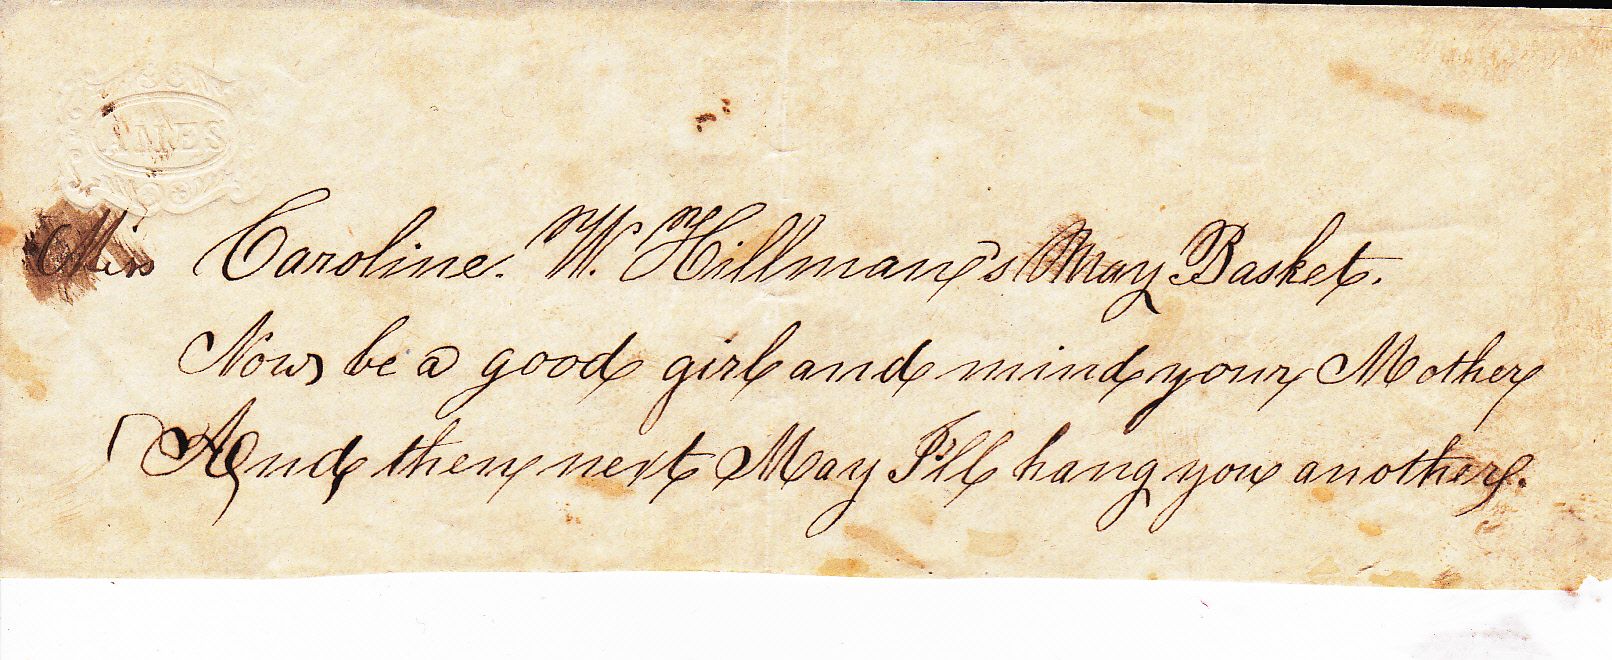 AMES
Miss Caroline. W. Hillman's May Basket.
Now be a good girl and mind your Mother
And then next May I'll hang you another.